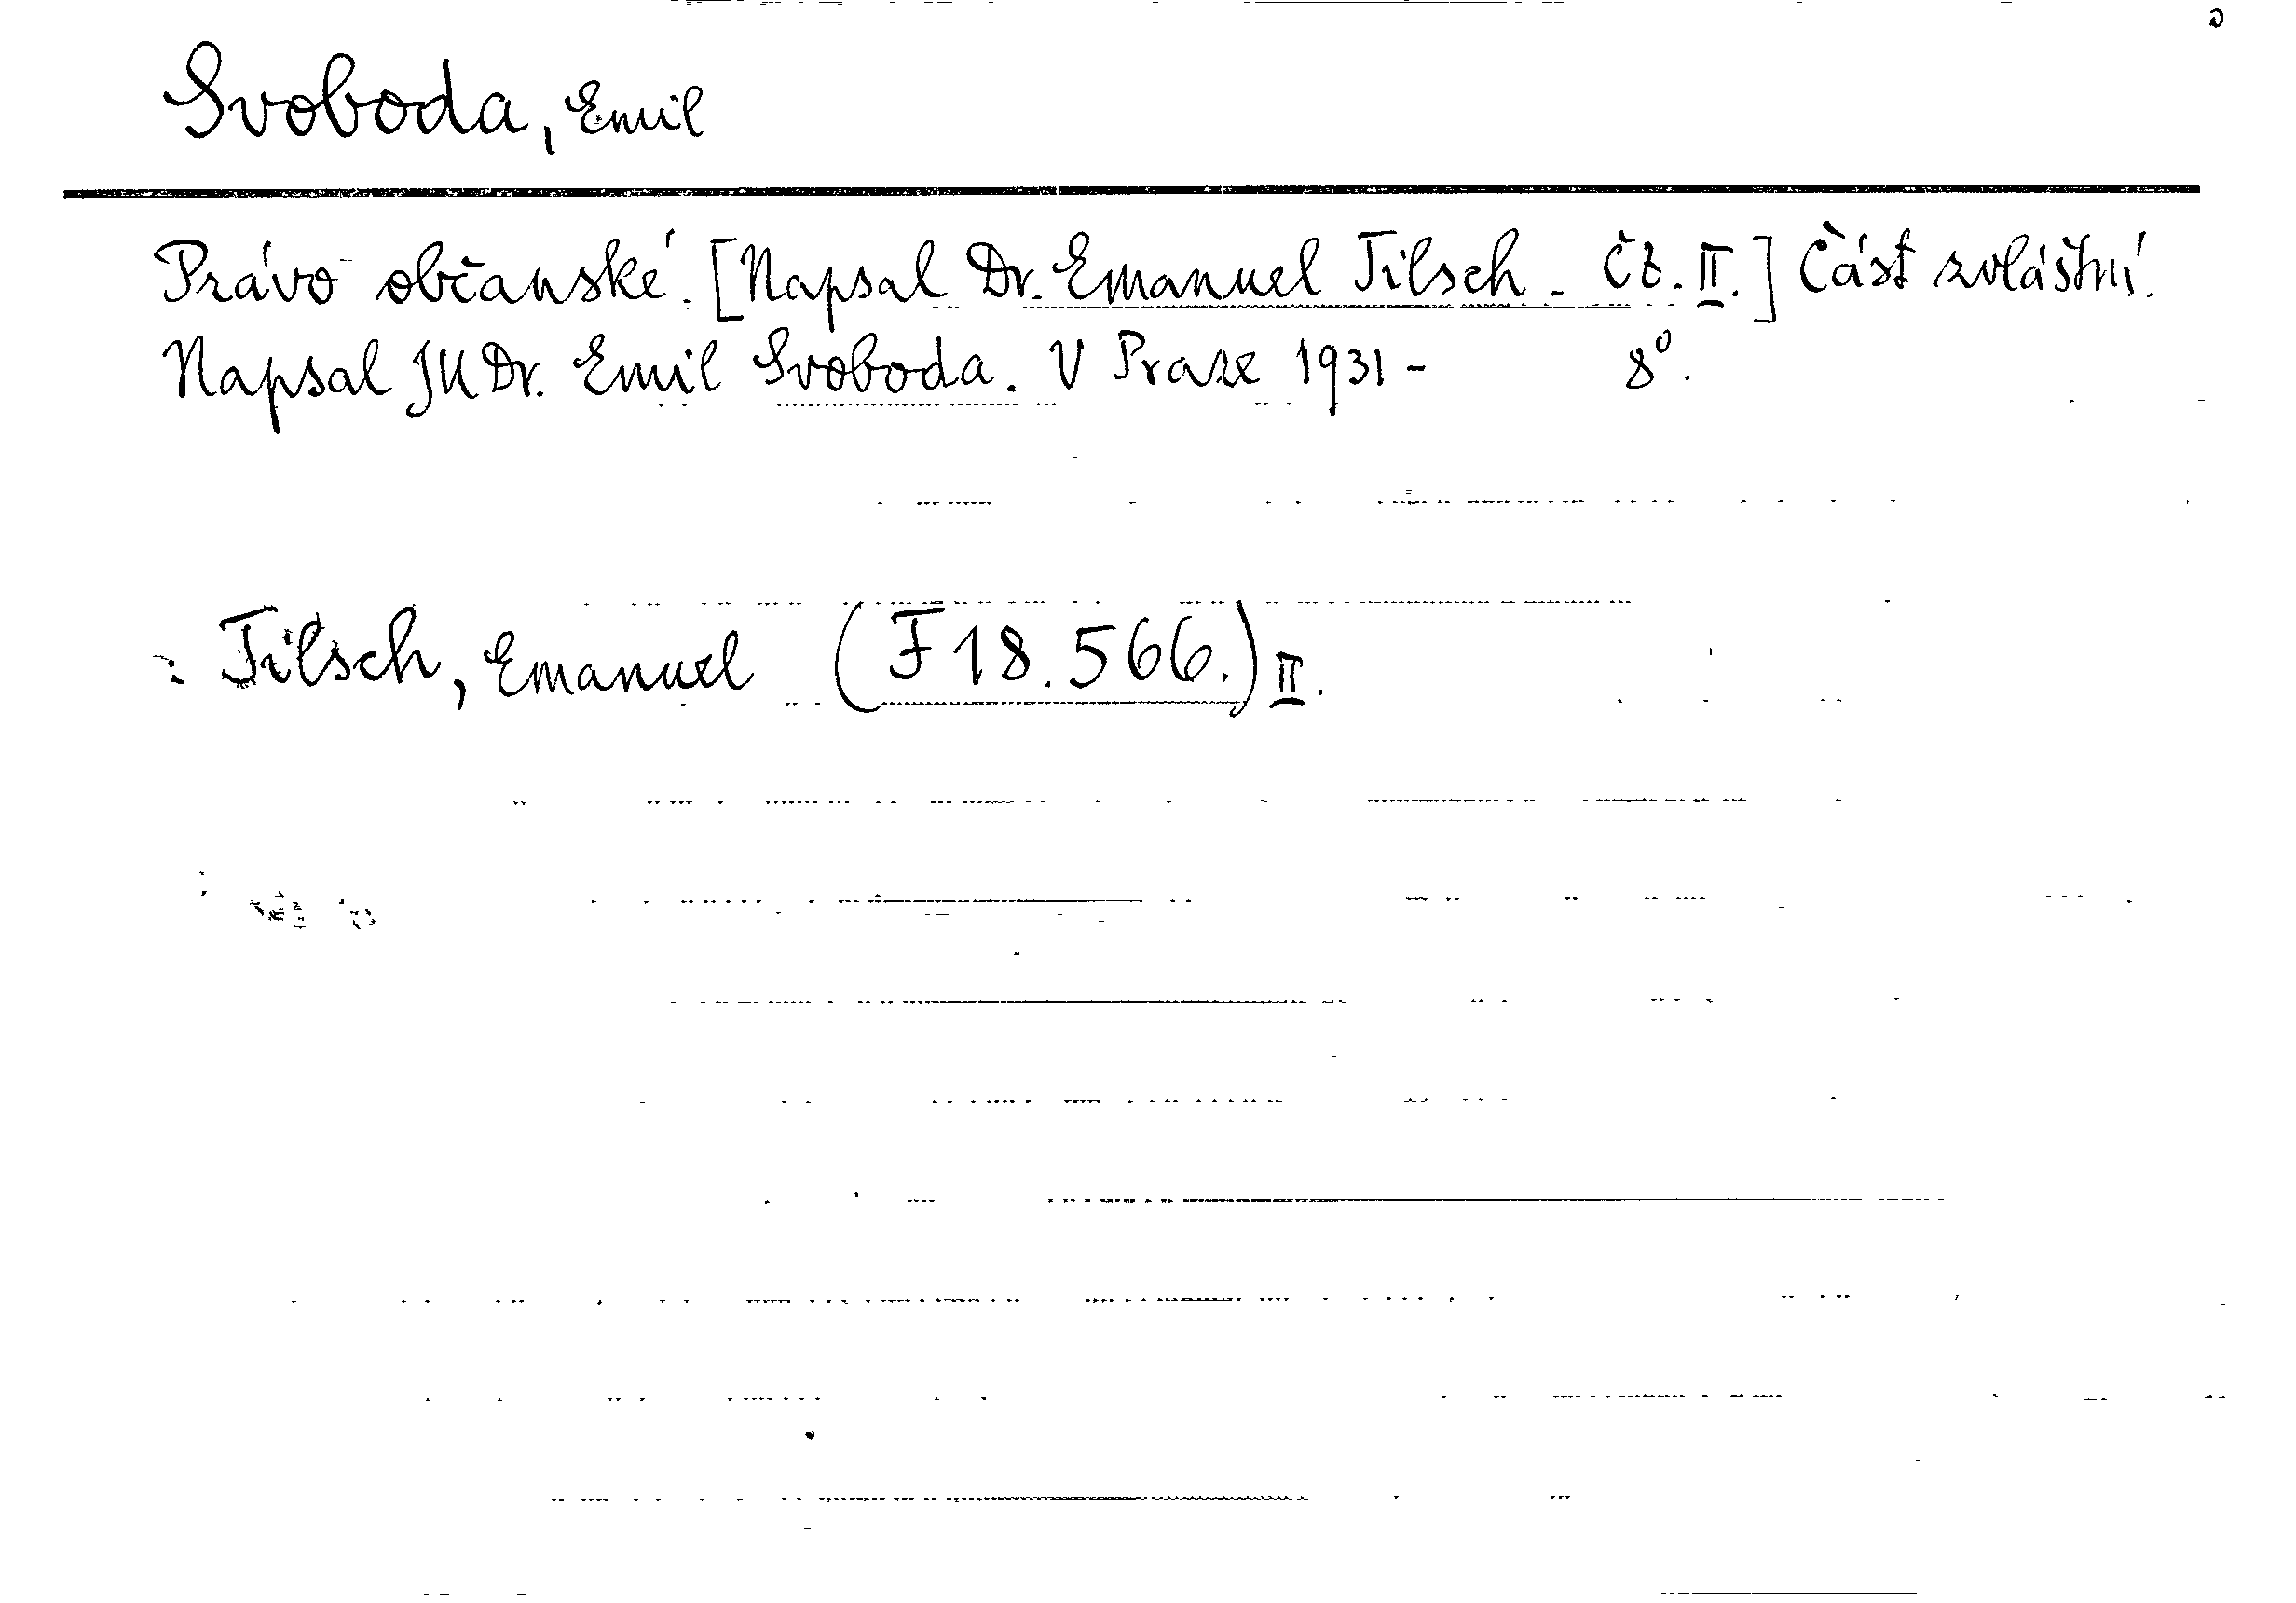 Svoboda, Emil
Právo občanské. [Napsal Dr. Emanuel Tilsch. Čá. II.] Část zvláštní.
Napsal JUDr. Emil Svoboda. V Praze 1931- 8°.
: Tilsch, Emanuel (F 18.566.) II.